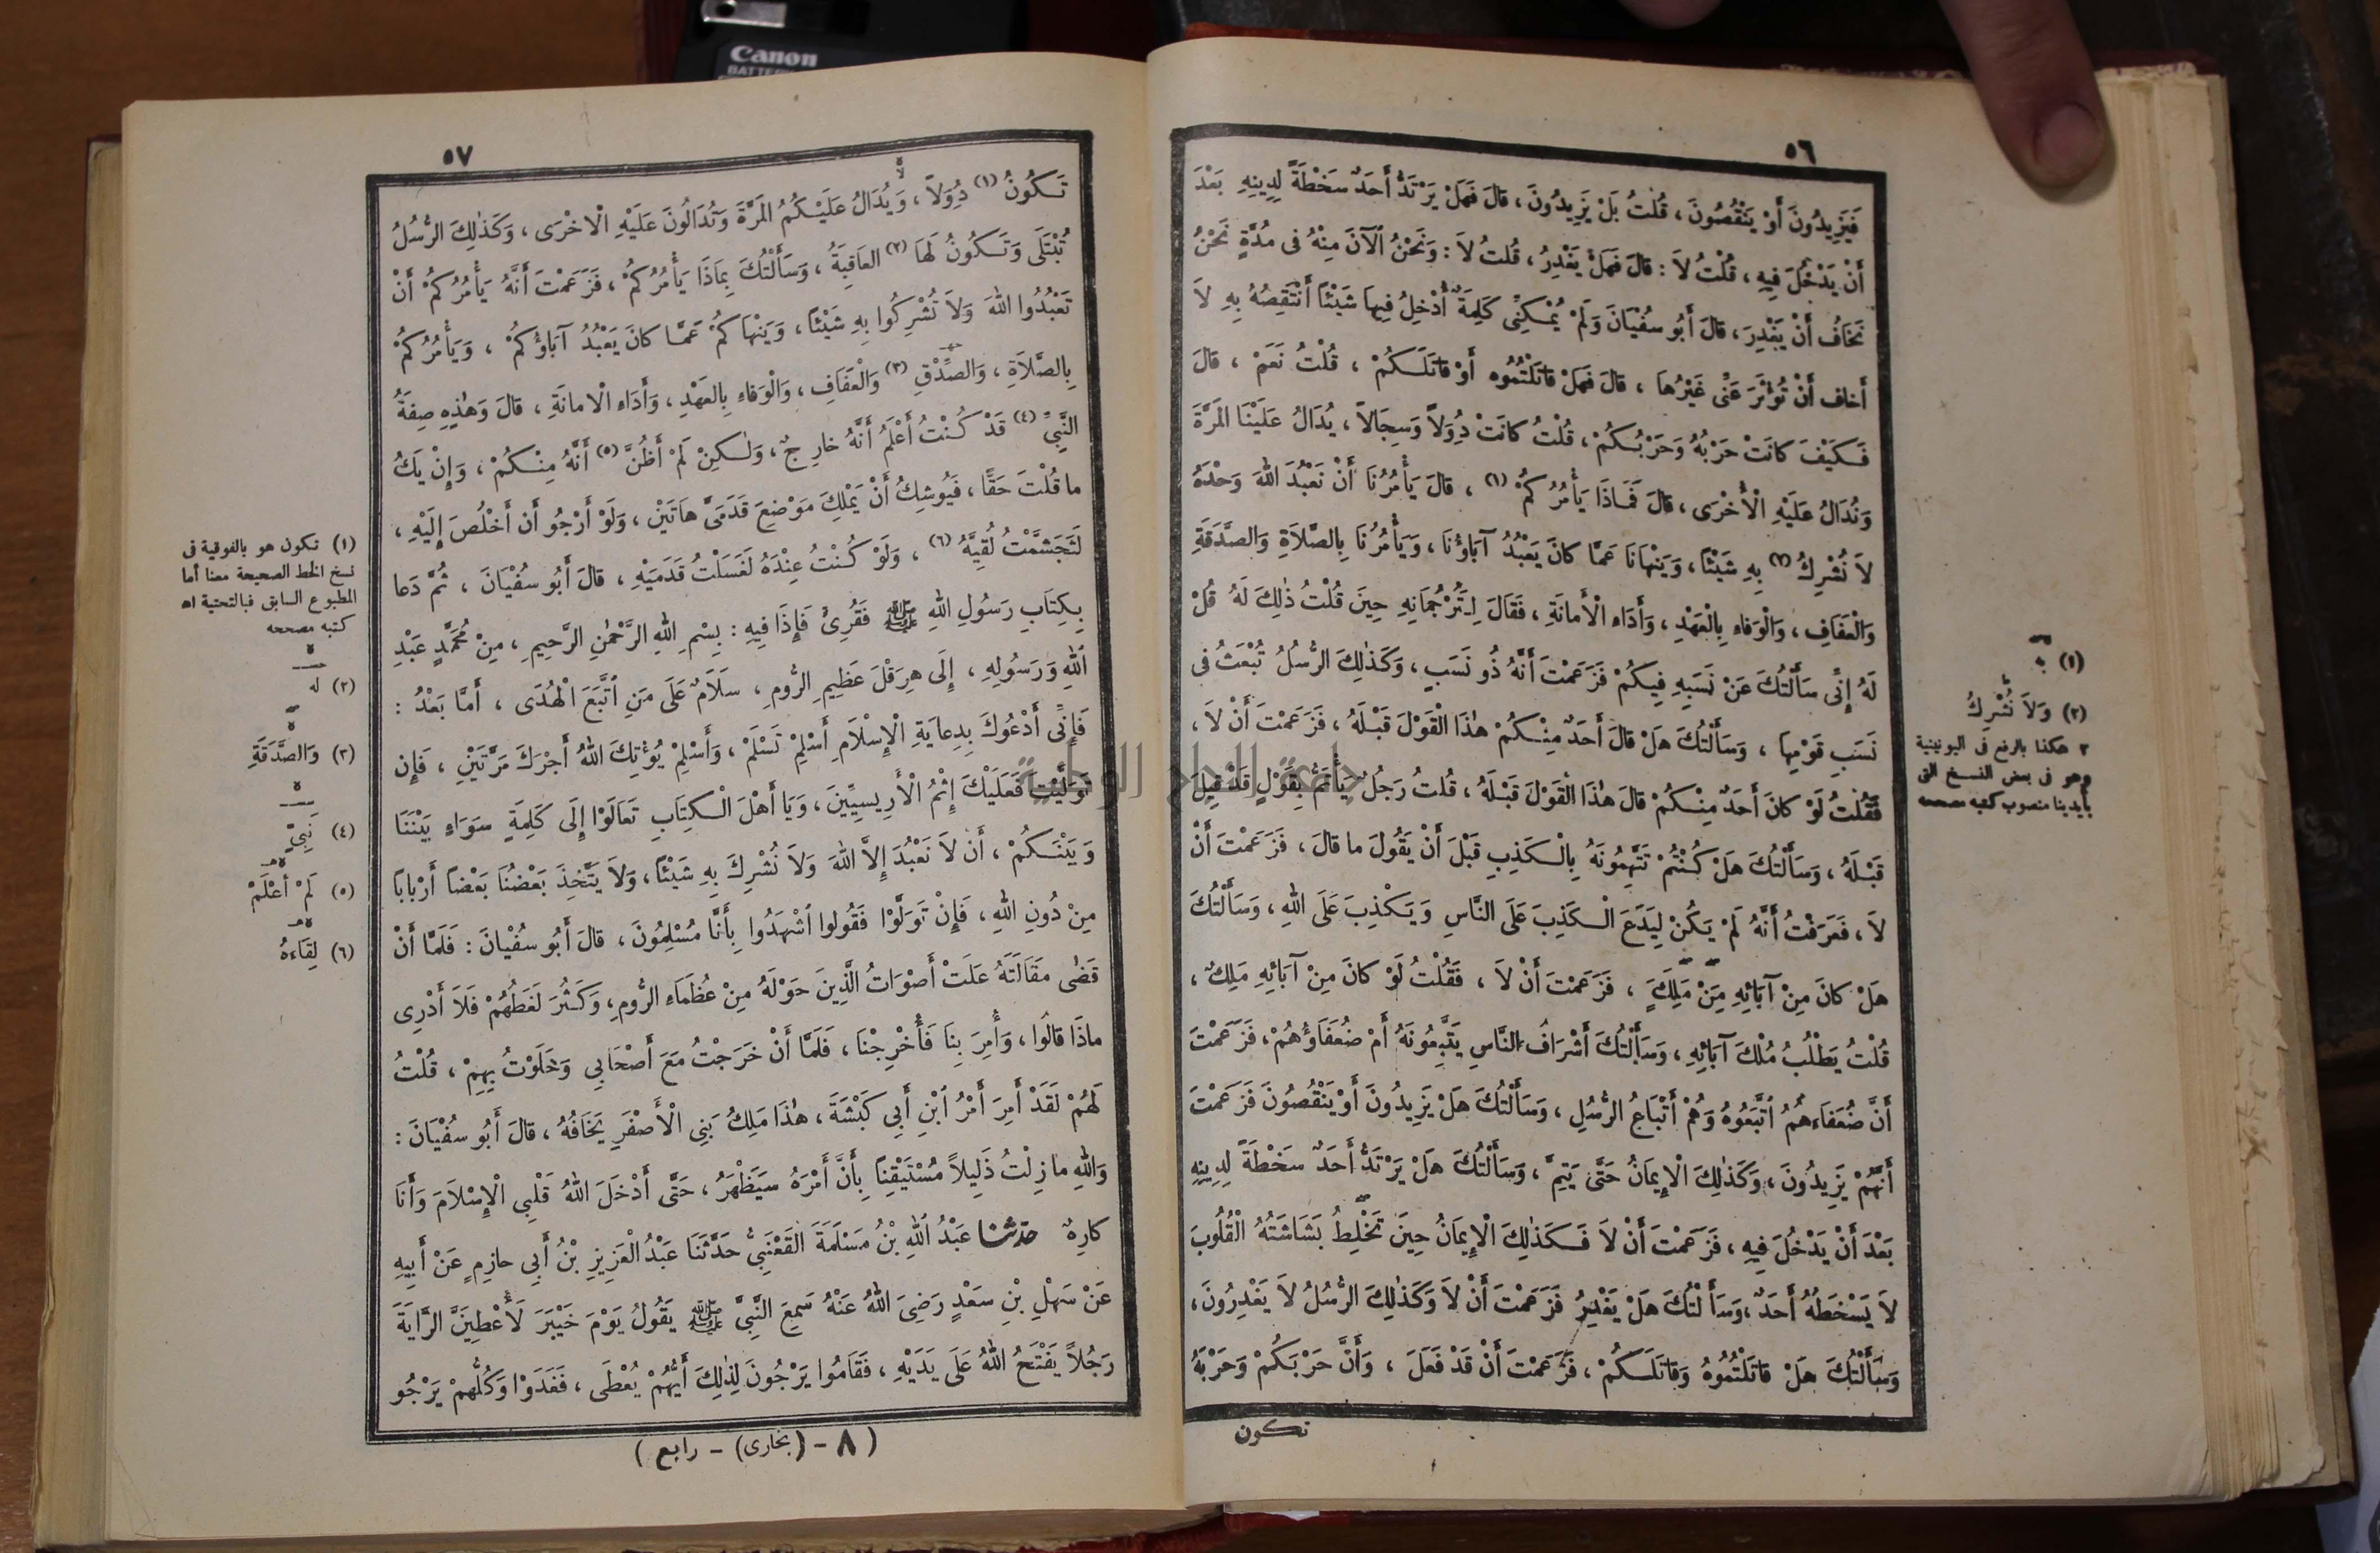 Canon
BATTERY
٥٦
فَيَزِيدُونَ أَوْ يَنْقُصُونَ ، قُلْتُ بَلْ يَزِيدُونَ ، قَالَ فَهَلْ يَرْتَدُّ أَحَدٌ سَخْطَةً لِدِينِهِ بَعْدَ
أَنْ يَدْخُلَ فِيهِ ، قُلْتُ لاَ : قالَ فَهَلْ يَغْدِرُ ، قُلتُ لاَ : وَنَحْنُ الآنَ مِنْهُ فى مُدَّةٍ نَحْنُ
نَخَافُ أَنْ يَغْدِرَ ، قالَ أَبُو سُفْيَانَ وَلَمْ يُمْكِنِّى كَلِمَةٌ أُدْخِلُ فِيهَا شَيْئًا أَنْتَقِصُهُ بِهِ لاَ
أَخاف أَنْ تُؤْثَرَ عَنِّى غَيْرُهَا ، قالَ فَهَلْ قاتَلْتُمُوه أَوْ قاتَلَكُمْ ، قُلْتُ نَعَمْ ، قالَ
فَكَيْفَ كانَتْ حَرْبُهُ وَحَرْبُكُمْ ، قُلْتُ كانَتْ دُوَلاً وَسِجَالاً ، يُدَالُ عَلَيْنَا المَرَّةَ
وَنُدَالُ عَلَيْهِ الْأُخْرَى ، قالَ فَمَاذَا يَأْمُرُكُمْ (١) ، قالَ يَأْمُرُنَا أَنْ نَعْبُدَ اللهَ وَحْدَهُ
لاَ نُشْرِكُ (٢) بِهِ شَيْئًا ، وَيَنْهَانَا عَمَّا كانَ يَعْبُدُ آبَاؤُنَا ، وَيَأْمُرُنَا بِالصَّلاَةِ وَالصَّدَقَةِ
وَالْعَفَافِ ، وَالْوَفاءِ بِالْعَهْدِ ، وَأَدَاءِ الْأَمانَةِ ، فَقَالَ لِتَرْجُمَانِهِ حِينَ قُلْتُ ذٰلِكَ لَهُ قُلْ
لَهُ إِنِّى سَأَلْتُكَ عَنْ نَسَبِهِ فِيكُمْ فَزَعَمْتَ أَنَّهُ ذُو نَسَبٍ ، وَكَذٰلِكَ الرُّسُلُ تُبْعَثُ فى
نَسَبِ قَوْمِهَا ، وَسَأَلْتُكَ هَلْ قالَ أَحَدٌ مِنْكُمْ هٰذَا الْقَوْلَ قَبْلَهُ ، فَزَعَمْتَ أَنْ لاَ ،
فَقُلْتُ لَوْ كانَ أَحَدٌ مِنْكُمْ قالَ هٰذَا الْقَوْلَ قَبْلَهُ ، قُلتُ رَجُلٌ يَأْتَمُّ بِقَوْلٍ قَدْ قِيلَ
قَبْلَهُ ، وَسَأَلْتُكَ هَلْ كُنْتُمْ تَتَّهِمُونَهُ بِالْكَذِبِ قَبْلَ أَنْ يَقُولَ ما قالَ ، فَزَعَمْتَ أَنْ
لاَ ، فَعَرَفْتُ أَنَّهُ لَمْ يَكُنْ لِيَدَعَ الْكَذِبَ عَلَى النَّاسِ وَيَكْذِبَ عَلَى اللهِ ، وَسَأَلْتُكَ
هَلْ كانَ مِنْ آبَائِهِ مِنْ مَلِكٍ ، فَزَعَمْتَ أَنْ لاَ ، فَقُلْتُ لَوْ كانَ مِنْ آبَائِهِ مَلِكٌ ،
قُلْتُ يَطْلُبُ مُلْكَ آبَائِهِ ، وَسَأَلْتُكَ أَشْرَافُ النَّاسِ يَتَّبِعُونَهُ أَمْ ضُعَفَاؤُهُمْ ، فَزَعَمْتَ
أَنَّ ضُعَفَاءَهُمُ اتَّبَعُوهُ وَهُمْ أَتْبَاعُ الرُّسُلِ ، وَسَأَلْتُكَ هَلْ يَزِيدُونَ أَوْ يَنْقُصُونَ فَزَعَمْتَ
أَنَّهُمْ يَزِيدُونَ ، وَكَذٰلِكَ الْإِيمَانُ حَتَّى يَتِمَّ ، وَسَأَلْتُكَ هَلْ يَرْتَدُّ أَحَدٌ سَخْطَةً لِدِينِهِ
بَعْدَ أَنْ يَدْخُلَ فِيهِ ، فَزَعَمْتَ أَنْ لاَ فَكَذٰلِكَ الْإِيمَانُ حِينَ تَخْلِطُ بَشَاشَتُهُ الْقُلُوبَ
لاَ يَسْخَطُهُ أَحَدٌ ، وَسَأَلْتُكَ هَلْ يَغْدِرُ فَزَعَمْتَ أَنْ لاَ وَكَذٰلِكَ الرُّسُلُ لاَ يَغْدِرُونَ ،
وَسَأَلْتُكَ هَلْ قاتَلْتُمُوهُ وَقاتَلَكُمْ ، فَزَعَمْتَ أَنْ قَدْ فَعَلَ ، وَأَنَّ حَرْبَكُمْ وَحَرْبَهُ
تكون
(١) بِه
(٢) وَلاَ نُشْرِكُ
٢ هكذا بالرفع فى اليونينية
وهو فى بعض النسخ التى
بأيدينا منصوب كتبه مصححه
٥٧
تَكُونُ (١) دُوَلاً ، وَيُدَالُ عَلَيْكُمُ المَرَّةَ وَتُدَالُونَ عَلَيْهِ الْأخْرَى ، وَكَذٰلِكَ الرُّسُلُ
تُبْتَلَى وَتَكُونُ لَهَا (٢) العَاقِبَةُ ، وَسَأَلْتُكَ بِمَاذَا يَأْمُرُكُمْ ، فَزَعَمْتَ أَنَّهُ يَأْمُرُكُمْ أَنْ
تَعْبُدُوا اللهَ وَلاَ تُشْرِكُوا بِهِ شَيْئًا ، وَيَنْهَاكُمْ عَمَّا كانَ يَعْبُدُ آبَاؤُكُمْ ، وَيَأْمُرُكُمْ
بِالصَّلاَةِ ، وَالصِّدْقِ (٣) وَالْعَفَافِ ، وَالْوَفاءِ بِالعَهْدِ ، وَأَدَاءِ الْأمانَةِ ، قالَ وَهٰذِهِ صِفَةُ
النَّبِيِّ (٤) قَدْ كُنْتُ أَعْلَمُ أَنَّهُ خارِجٌ ، وَلٰكِنْ لَمْ أَظُنَّ (٥) أَنَّهُ مِنْكُمْ ، وَإِنْ يَكُ
ما قُلْتَ حَقًّا ، فَيُوشِكُ أَنْ يَمْلِكَ مَوْضِعَ قَدَمَىَّ هاتَيْنِ ، وَلَوْ أَرْجُو أَن أَخْلُصَ إِلَيْهِ ،
لَتَجَشَّمْتُ لُقِيَّهُ (٦) ، وَلَوْ كُنْتُ عِنْدَهُ لَغَسَلْتُ قَدَمَيْهِ ، قالَ أَبُو سُفْيَانَ ، ثُمَّ دَعا
بِكِتَابِ رَسُولِ اللهِ ﷺ فَقُرِئَ فَإِذَا فِيهِ : بِسْمِ اللهِ الرَّحْمٰنِ الرَّحِيمِ ، مِنْ مُحَمَّدٍ عَبْدِ
اللهِ وَرَسُولِهِ ، إِلَى هِرَقْلَ عَظِيمِ الرُّومِ ، سَلاَمٌ عَلَى مَنِ اتَّبَعَ الْهُدَى ، أَمَّا بَعْدُ :
فَإِنِّى أَدْعُوكَ بِدِعايَةِ الْإِسْلاَمِ أَسْلِمْ تَسْلَمْ ، وَأَسْلِمْ يُؤْتِكَ اللهُ أَجْرَكَ مَرَّتَيْنِ ، فَإِن
تَوَلَّيْتَ فَعَلَيْكَ إِثْمُ الْأَرِيسِيِّينَ ، وَيَا أَهْلَ الْكِتَابِ تَعَالَوْا إِلَى كَلِمَةٍ سَوَاءٍ بَيْنَنَا
وَبَيْنَكُمْ ، أَن لاَ نَعْبُدَ إِلاَّ اللهَ وَلاَ نُشْرِكَ بِهِ شَيْئًا ، وَلاَ يَتَّخِذَ بَعْضُنَا بَعْضًا أَرْبابًا
مِنْ دُونِ اللهِ ، فَإِنْ تَوَلَّوْا فَقُولُوا اشْهَدُوا بِأَنَّا مُسْلِمُونَ ، قالَ أَبُو سُفْيَانَ : فَلَمَّا أَنْ
قَضٰى مَقَالَتَهُ عَلَتْ أَصْوَاتُ الَّذِينَ حَوْلَهُ مِنْ عُظَمَاءِ الرُّومِ ، وَكَثُرَ لَغَطُهُمْ فَلاَ أَدْرِى
ماذَا قالُوا ، وَأُمِرَ بِنَا فَأُخْرِجْنَا ، فَلَمَّا أَنْ خَرَجْتُ مَعَ أَصْحَابِى وَخَلَوْتُ بِهِمْ ، قُلْتُ
لَهُمْ لَقَدْ أَمِرَ أَمْرُ ابْنِ أَبِى كَبْشَةَ ، هٰذَا مَلِكُ بَنِى الْأَصْفَرِ يَخَافُهُ ، قالَ أَبُو سُفْيَانَ :
وَاللهِ ما زِلْتُ ذَلِيلاً مُسْتَيْقِنًا بِأَنَّ أَمْرَهُ سَيَظْهَرُ ، حَتَّى أَدْخَلَ اللهُ قَلْبِى الْإِسْلاَمَ وَأَنَا
كارِهٌ حَدَّثَنا عَبْدُ اللهِ بْنُ مَسْلَمَةَ القَعْنَبِىُّ حَدَّثَنَا عَبْدُ الْعَزِيزِ بْنُ أَبِى حازِمٍ عَنْ أَبِيهِ
عَنْ سَهْلِ بْنِ سَعْدٍ رَضِىَ اللهُ عَنْهُ سَمِعَ النَّبِىَّ ﷺ يَقُولُ يَوْمَ خَيْبَرَ لَأُعْطِيَنَّ الرَّايَةَ
رَجُلاً يَفْتَحُ اللهُ عَلَى يَدَيْهِ ، فَقَامُوا يَرْجُونَ لِذٰلِكَ أَيُّهُمْ يُعْطَى ، فَغَدَوْا وَكُلُّهُمْ يَرْجُو
( ٨ - (بخارى) - رابع )
(١) تكون هو بالفوقية فى
نسخ الخط الصحيحة معنا أما
المطبوع السابق فبالتحتية اه
كتبه مصححه
(٢) له
(٣) وَالصَّدَقَةِ
(٤) نَبِىٍّ
(٥) لَمْ أَعْلَمْ
(٦) لِقَاءَهُ
جامعة النجاح الوطنية